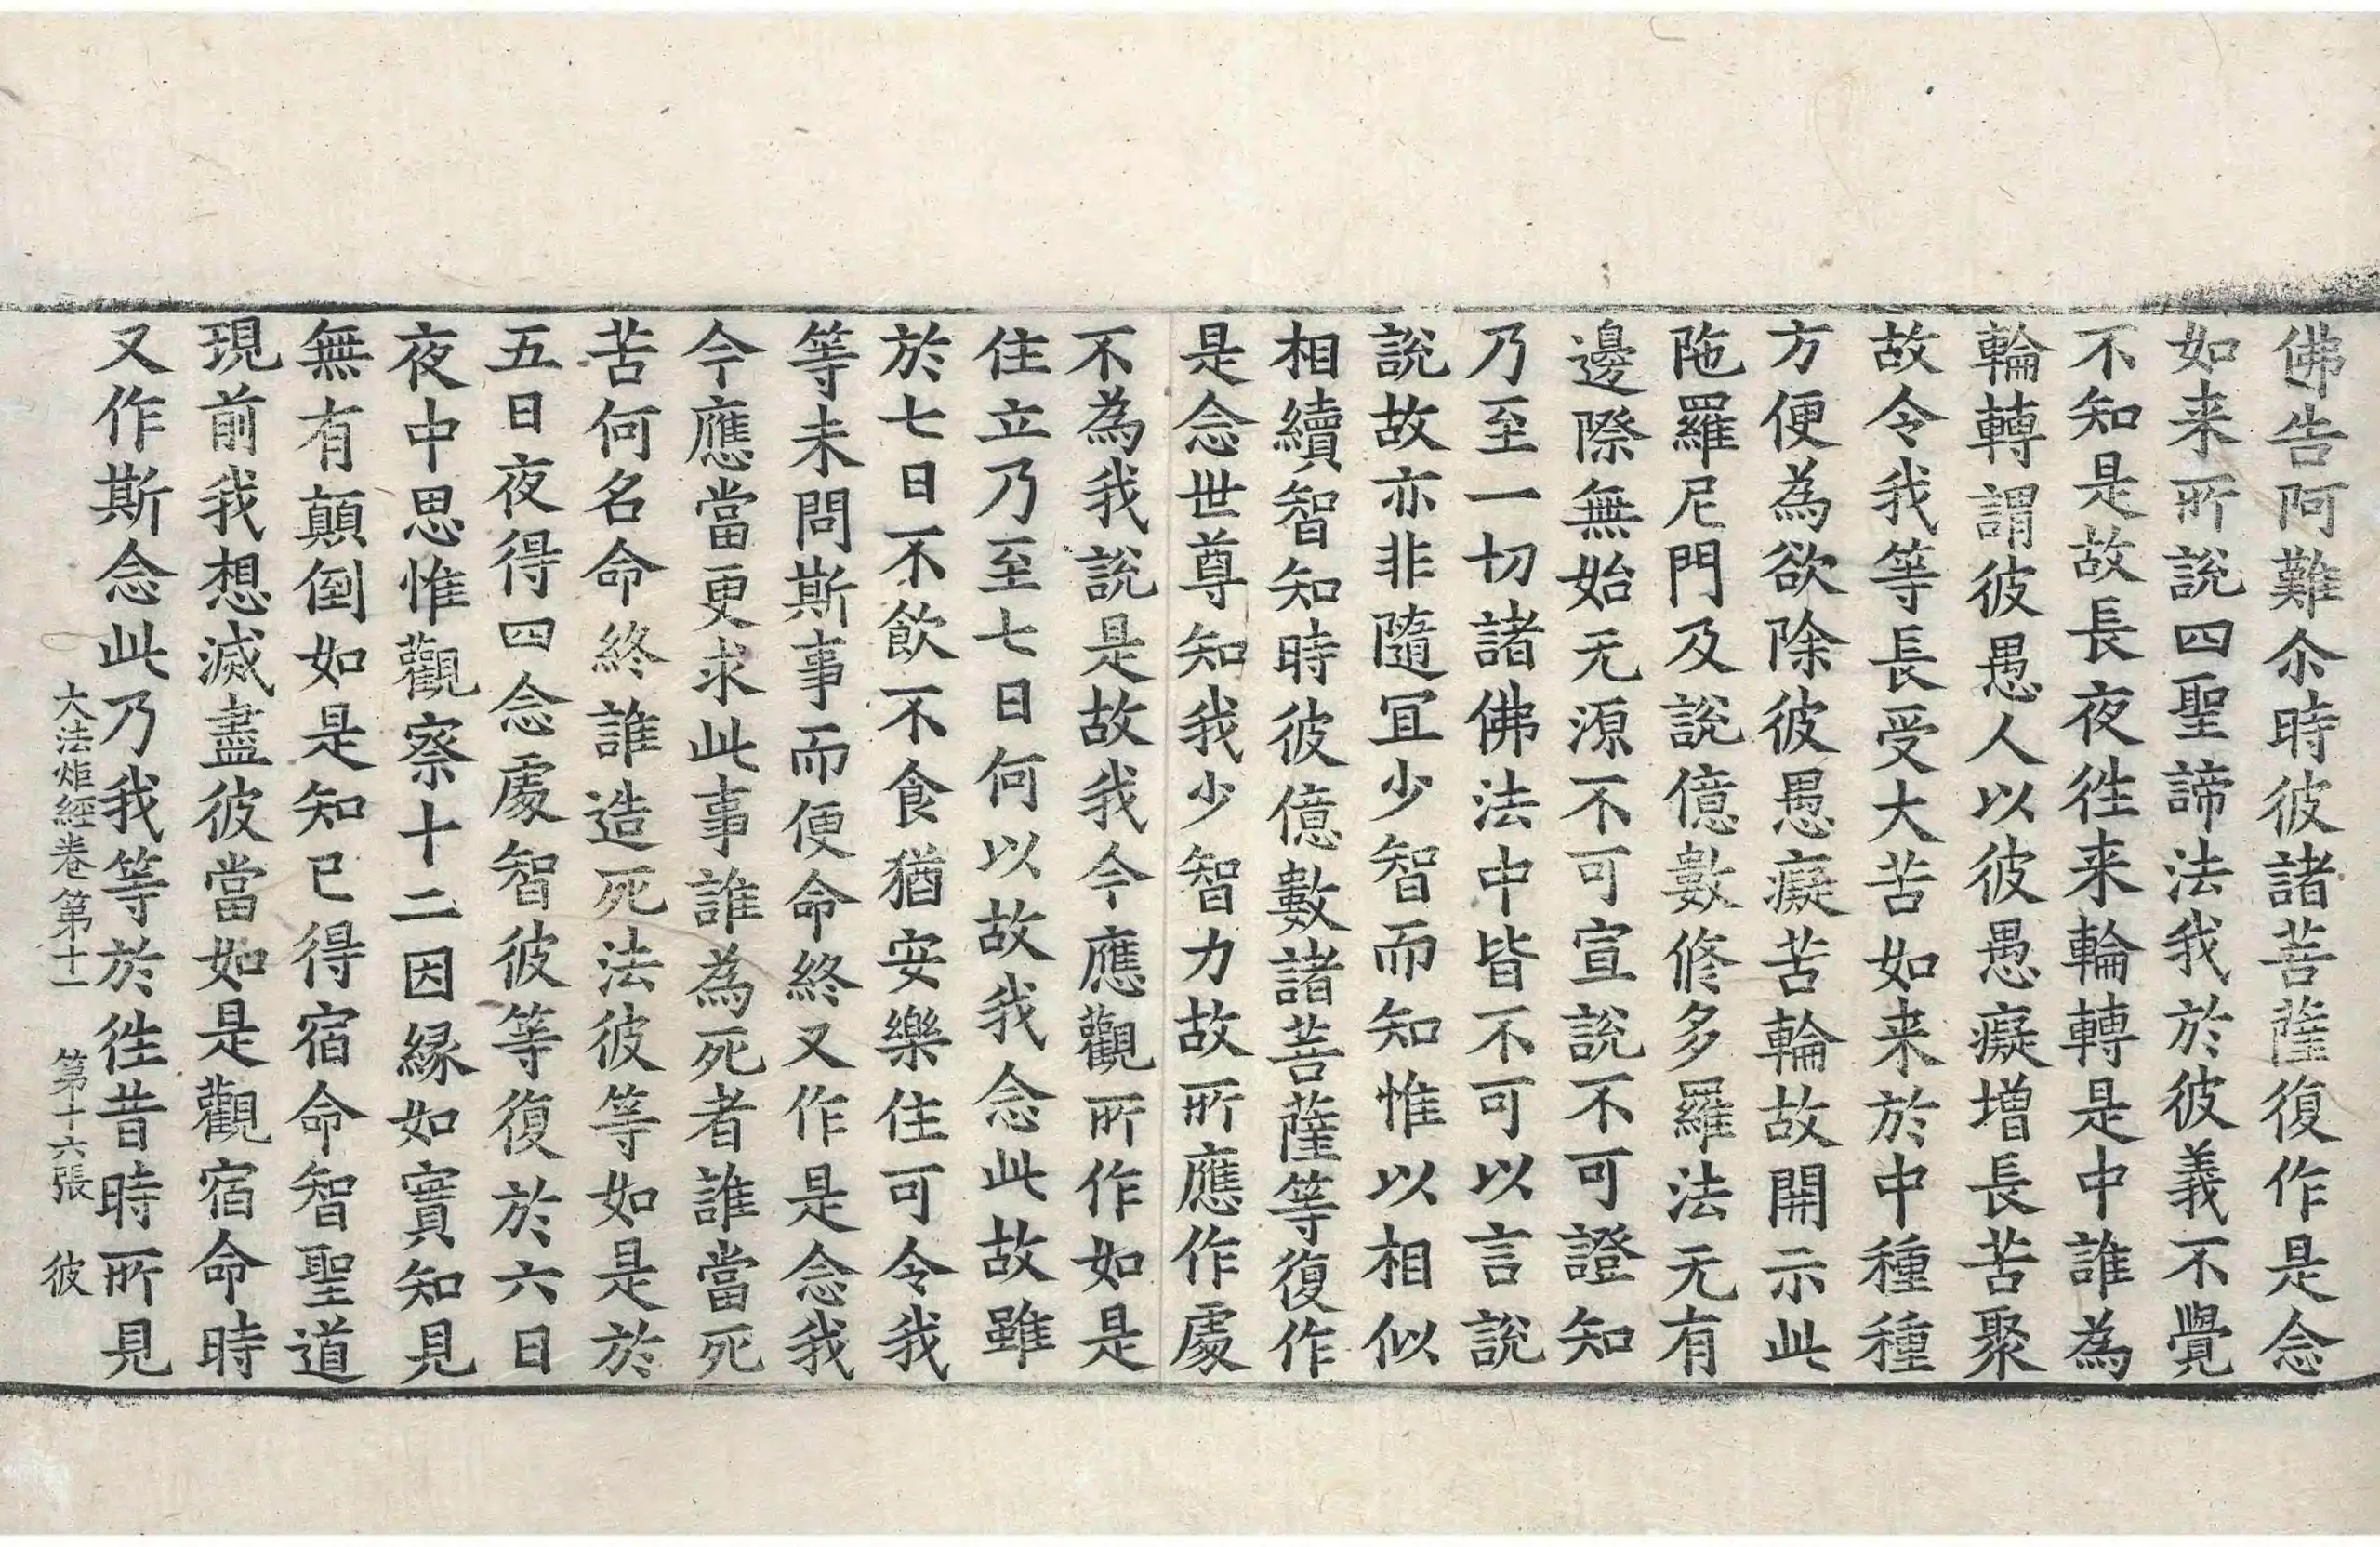 佛告阿難尒時彼諸菩薩復作是念
如来所說四聖諦法我於彼義不覺
不知是故長夜徃来輪轉是中誰為
輪轉謂彼愚人以彼愚癡增長苦聚
故令我等長受大苦如来於中種種
方便為欲除彼愚癡苦輪故開示此
陁羅尼門及說億數修多羅法无有
邊際無始无源不可宣說不可證知
乃至一切諸佛法中皆不可以言說
說故亦非隨冝少智而知惟以相似
相續智知時彼億數諸菩薩等復作
是念世尊知我少智力故所應作處
不為我說是故我今應觀所作如是
住立乃至七日何以故我念此故雖
於七日不飲不食猶安樂住可令我
等未問斯事而便命終又作是念我
今應當更求此事誰為死者誰當死
苦何名命終誰造死法彼等如是於
五日夜得四念處智彼等復於六日
夜中思惟觀察十二因緣如實知見
無有顛倒如是知已得宿命智聖道
現前我想滅盡彼當如是觀宿命時
又作斯念此乃我等於徃昔時所見
大法炬經卷第十一　第十六張　彼